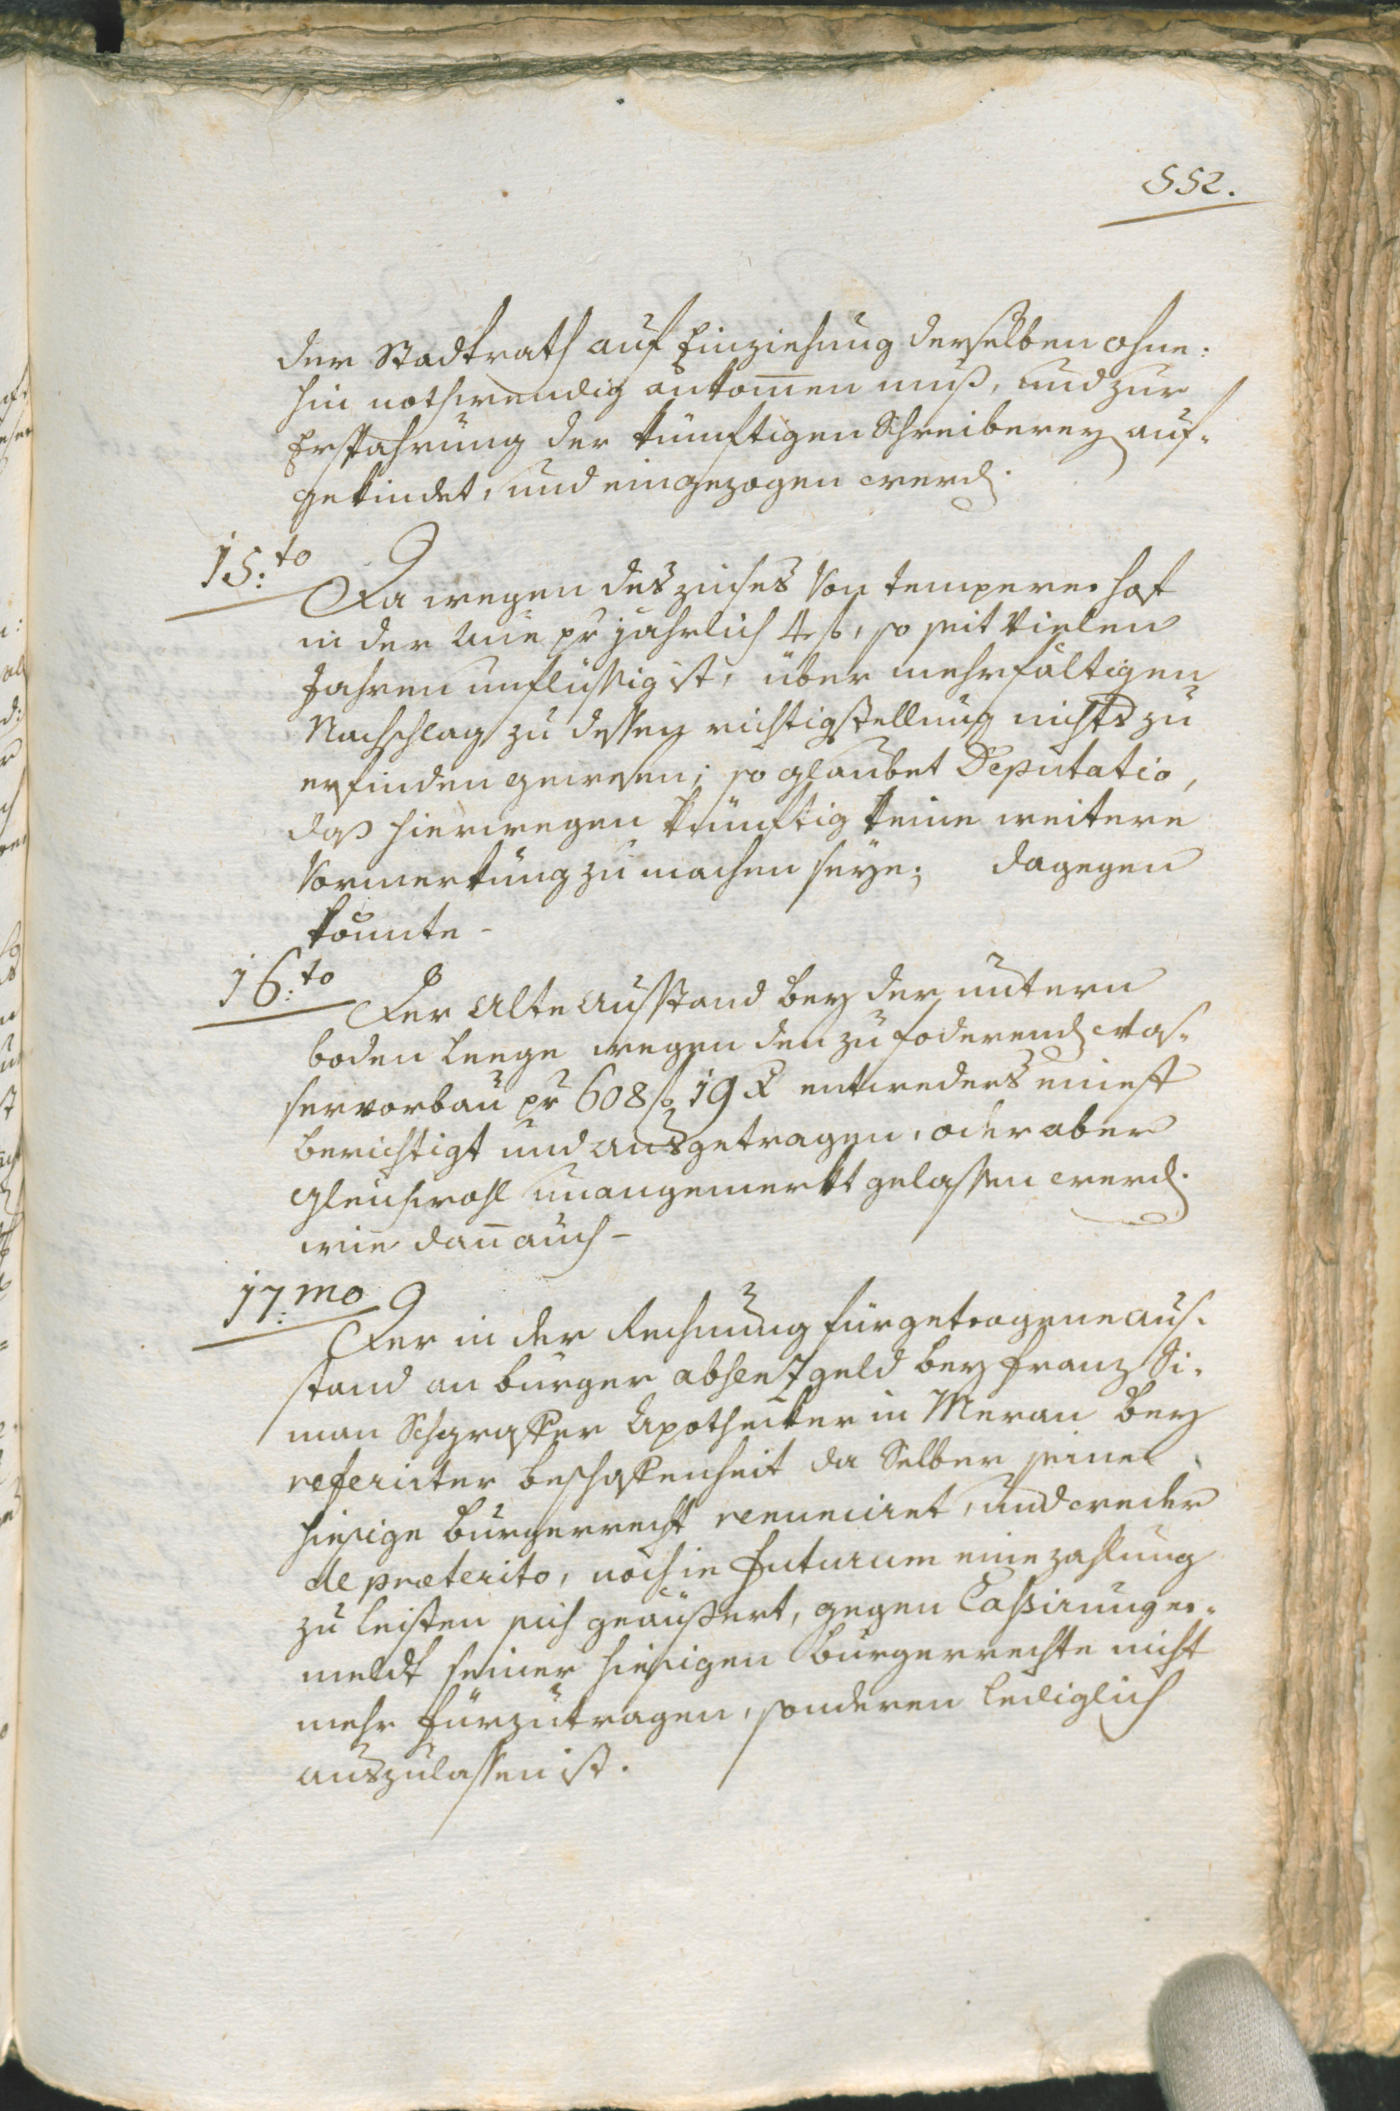 552.
der Stadtrath auf Einziehung derselben ohne:
hin nothwendig ankom̄en muß, und zur
Erspahrung der künftigen Schreiberey auf-
gekindet, und eingezogen werd.
15:to
Da wegen des zinses von temperer hof
in der Aue pr jährlich 4 f, so seit vielen
Jahren unflüßig ist, über mehrfältigen
Nachschlag zu dessen richtigstellung nichts zu
erfinden gewesen; so glaubet Deputatio,
daß hierwegen künftig keine weitere
Vormerkung zu machen seye; dagegen
konnte-
16:to
Der Alte Ausstand bey der untern
boden leege wegen den zu foderend Was-
servorbau pr 608 f 19 x entweders einest
berichtigt und ausgetragen, oder aber
gleichwohl unangemerkt gelassen werd.
wie dan̄ auch-
17:mo
Der in der Rechnung fürgetragene aus-
stand an burger absentgeld bey franz Si-
man Apothecker in Meran bey
referirter beschaffenheit da Selber seine
hiesige burgerrecht renunciret, und weder
de præterito, noch in futurum eine zahlung
zu leisten sich geäußert, gegen Cassirung er-
meldt seiner hiesigen burgerrechte nicht
mehr fürzutragen, sonderen lediglich
auszulassen ist.